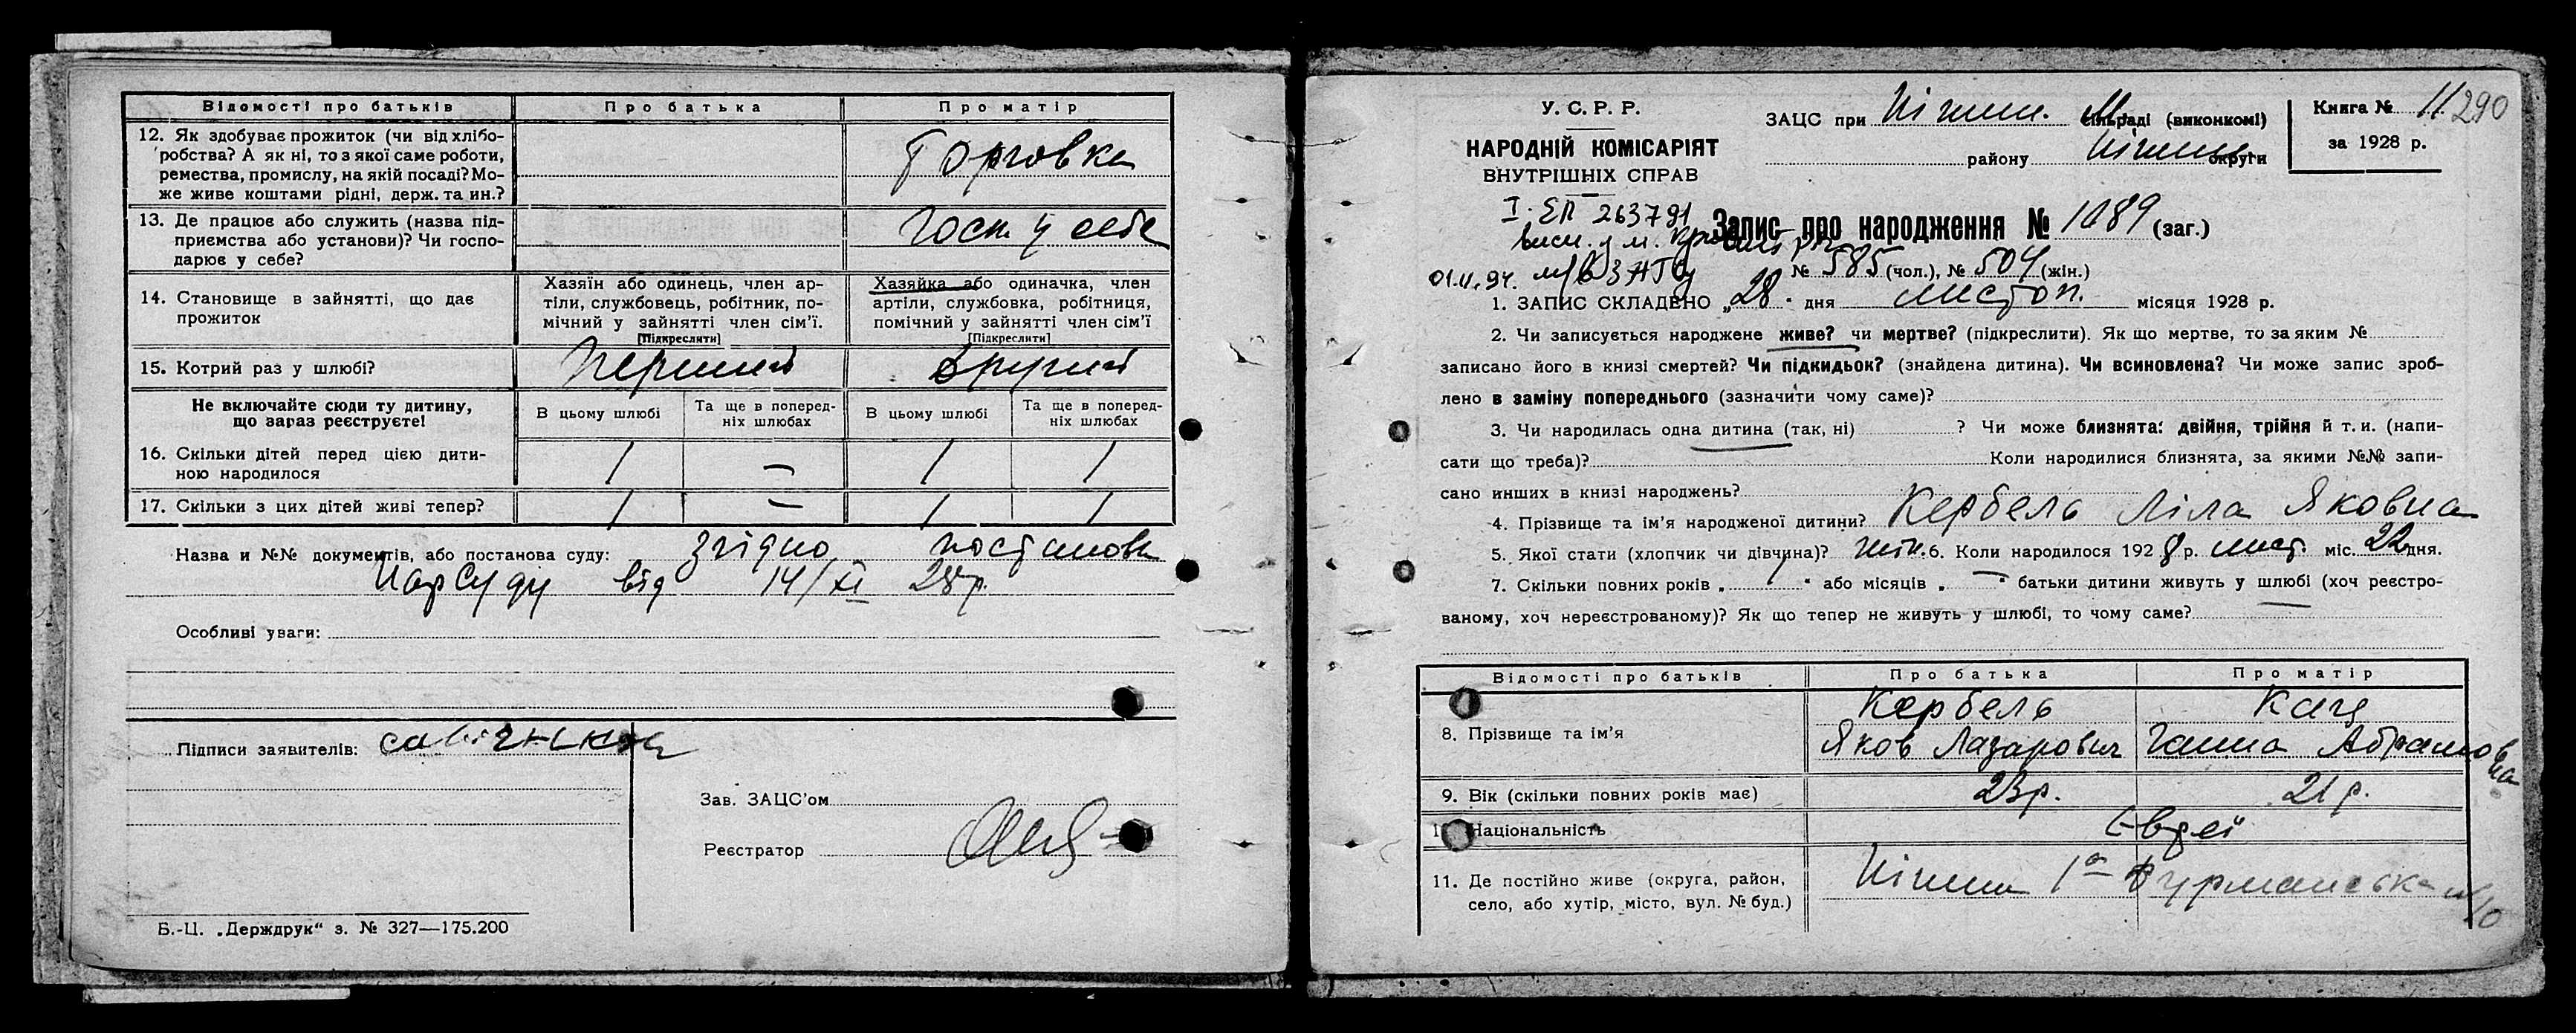 Відомості про батьків
Про батька
Про матір
12. Як здобуває прожиток (чи від хлібо-
робства? А як ні, то з якої саме роботи,
ремества, промислу, на якій посаді? Мо-
же живе коштами рідні, держ. та ин.?
Торговка
13. Де працює або служить (назва під-
приємства або установи)? Чи госпо-
дарює у себе?
Госп. у себе
14. Становище в зайнятті, що дає
прожиток
Хазяїн або одинець, член ар-
тілі, службовець, робітник, по-
мічний у зайнятті член сім'ї.
[Підкреслити]
Хазяйка або одиначка, член
артілі, службовка, робітниця,
помічний у зайнятті член сім'ї
[Підкреслити]
15. Котрий раз у шлюбі?
Перший
Другий
Не включайте сюди ту дитину,
що зараз реєструєте!
В цьому шлюбі
Та ще в поперед-
ніх шлюбах
В цьому шлюбі
Та ще в поперед-
ніх шлюбах
16. Скільки дітей перед цією дити-
ною народилося
1 — 1 1
17. Скільки з цих дітей живі тепер?
1 — 1 1
Назва и №№ документів, або постанова суду: згідно постанови
НарСуду від 14/XI 28 р.
Особливі уваги:
Підписи заявителів:
Зав. ЗАЦС'ом
Реєстратор
Б.-Ц. „Держдрук“ з. № 327—175.200
У. С. Р. Р.
НАРОДНІЙ КОМІСАРІЯТ
ВНУТРІШНІХ СПРАВ
ЗАЦС при Ніжин. М. сільраді (виконкомі)
району Ніжин. округи
Книга № 11
за 1928 р.
290
І-ЕП 263791
01.11.94.
Запис про народження № 1089 (заг.)
№ 585 (чол.), № 504 (жін.)
1. ЗАПИС СКЛАДЕНО „28“ дня листоп. місяця 1928 р.
2. Чи записується народжене живе? чи мертве? (підкреслити). Як що мертве, то за яким №
записано його в книзі смертей? Чи підкидьок? (знайдена дитина). Чи всиновлена? Чи може запис зроб-
лено в заміну попереднього (зазначити чому саме)?
3. Чи народилась одна дитина (так, ні) ? Чи може близнята: двійня, трійня й т. и. (напи-
сати що треба)? Коли народилися близнята, за якими №№ запи-
сано инших в книзі народжень?
4. Прізвище та ім'я народженої дитини? Кербель Ліла Яковна
5. Якої стати (хлопчик чи дівчина)? жін. 6. Коли народилося 1928 р. лист. міс. 22 дня.
7. Скільки повних років „ “ або місяців „ — “ батьки дитини живуть у шлюбі (хоч реєстро-
ваному, хоч нереєстрованому)? Як що тепер не живуть у шлюбі, то чому саме?
Відомості про батьків
Про батька
Про матір
8. Прізвище та ім'я
Кербель
Яков Лазарович
Кац
Ганна Абрамовна
9. Вік (скільки повних років має)
23 р.
21 р.
Національність
Євреї
11. Де постійно живе (округа, район,
село, або хутір, місто, вул. № буд.)
Ніжин 1а Фурманська 10